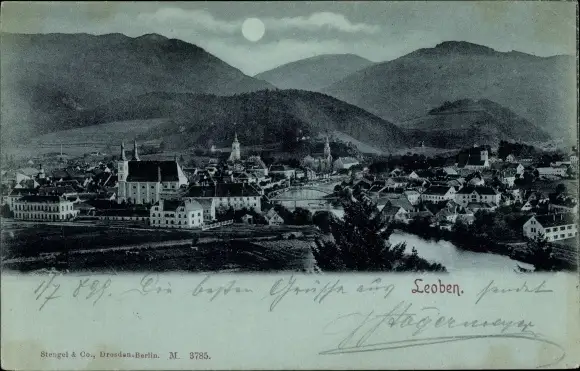 Leoben.
1/7 898. Die besten Grüsse aus sendet
JHägermeyer
Stengel & Co., Dresden-Berlin. M. 3785.